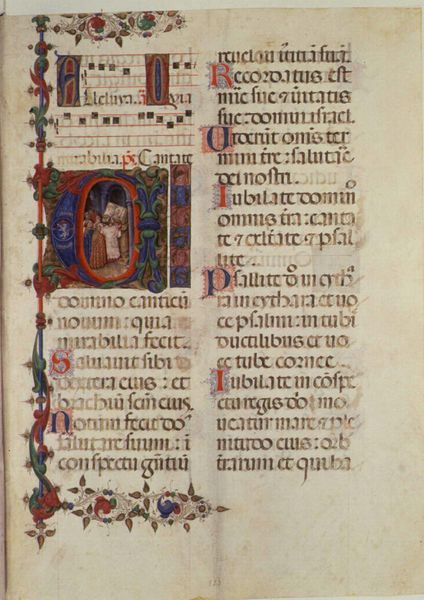 Alleluya. Quia
mirabilia. ps. Cantate
domino canticū
novum: quia
mirabilia fecit.
Salvavit sibi
dextera eius: et
brachiū scm̄ eius.
Notum fecit do͂
salutare suum: ī
conspectu gentiū
Recordatus est
mīe sue et vitatis
sue: domui israel.
Viderunt omēs ter
mini tre: salutare
dei nostri.
Iubilate domīo
omnis tra: canta
te et exltate et psal
lite.
Psallite dō in cyth
ra in cythara et vo
ce psalmi: in tubi
ductilibus et vo
ce tube cornee.
Iubilate in cōspe
ctu regis dō: mo
veatur mare et ple
nitudo eius: orb
trarum et qui ha